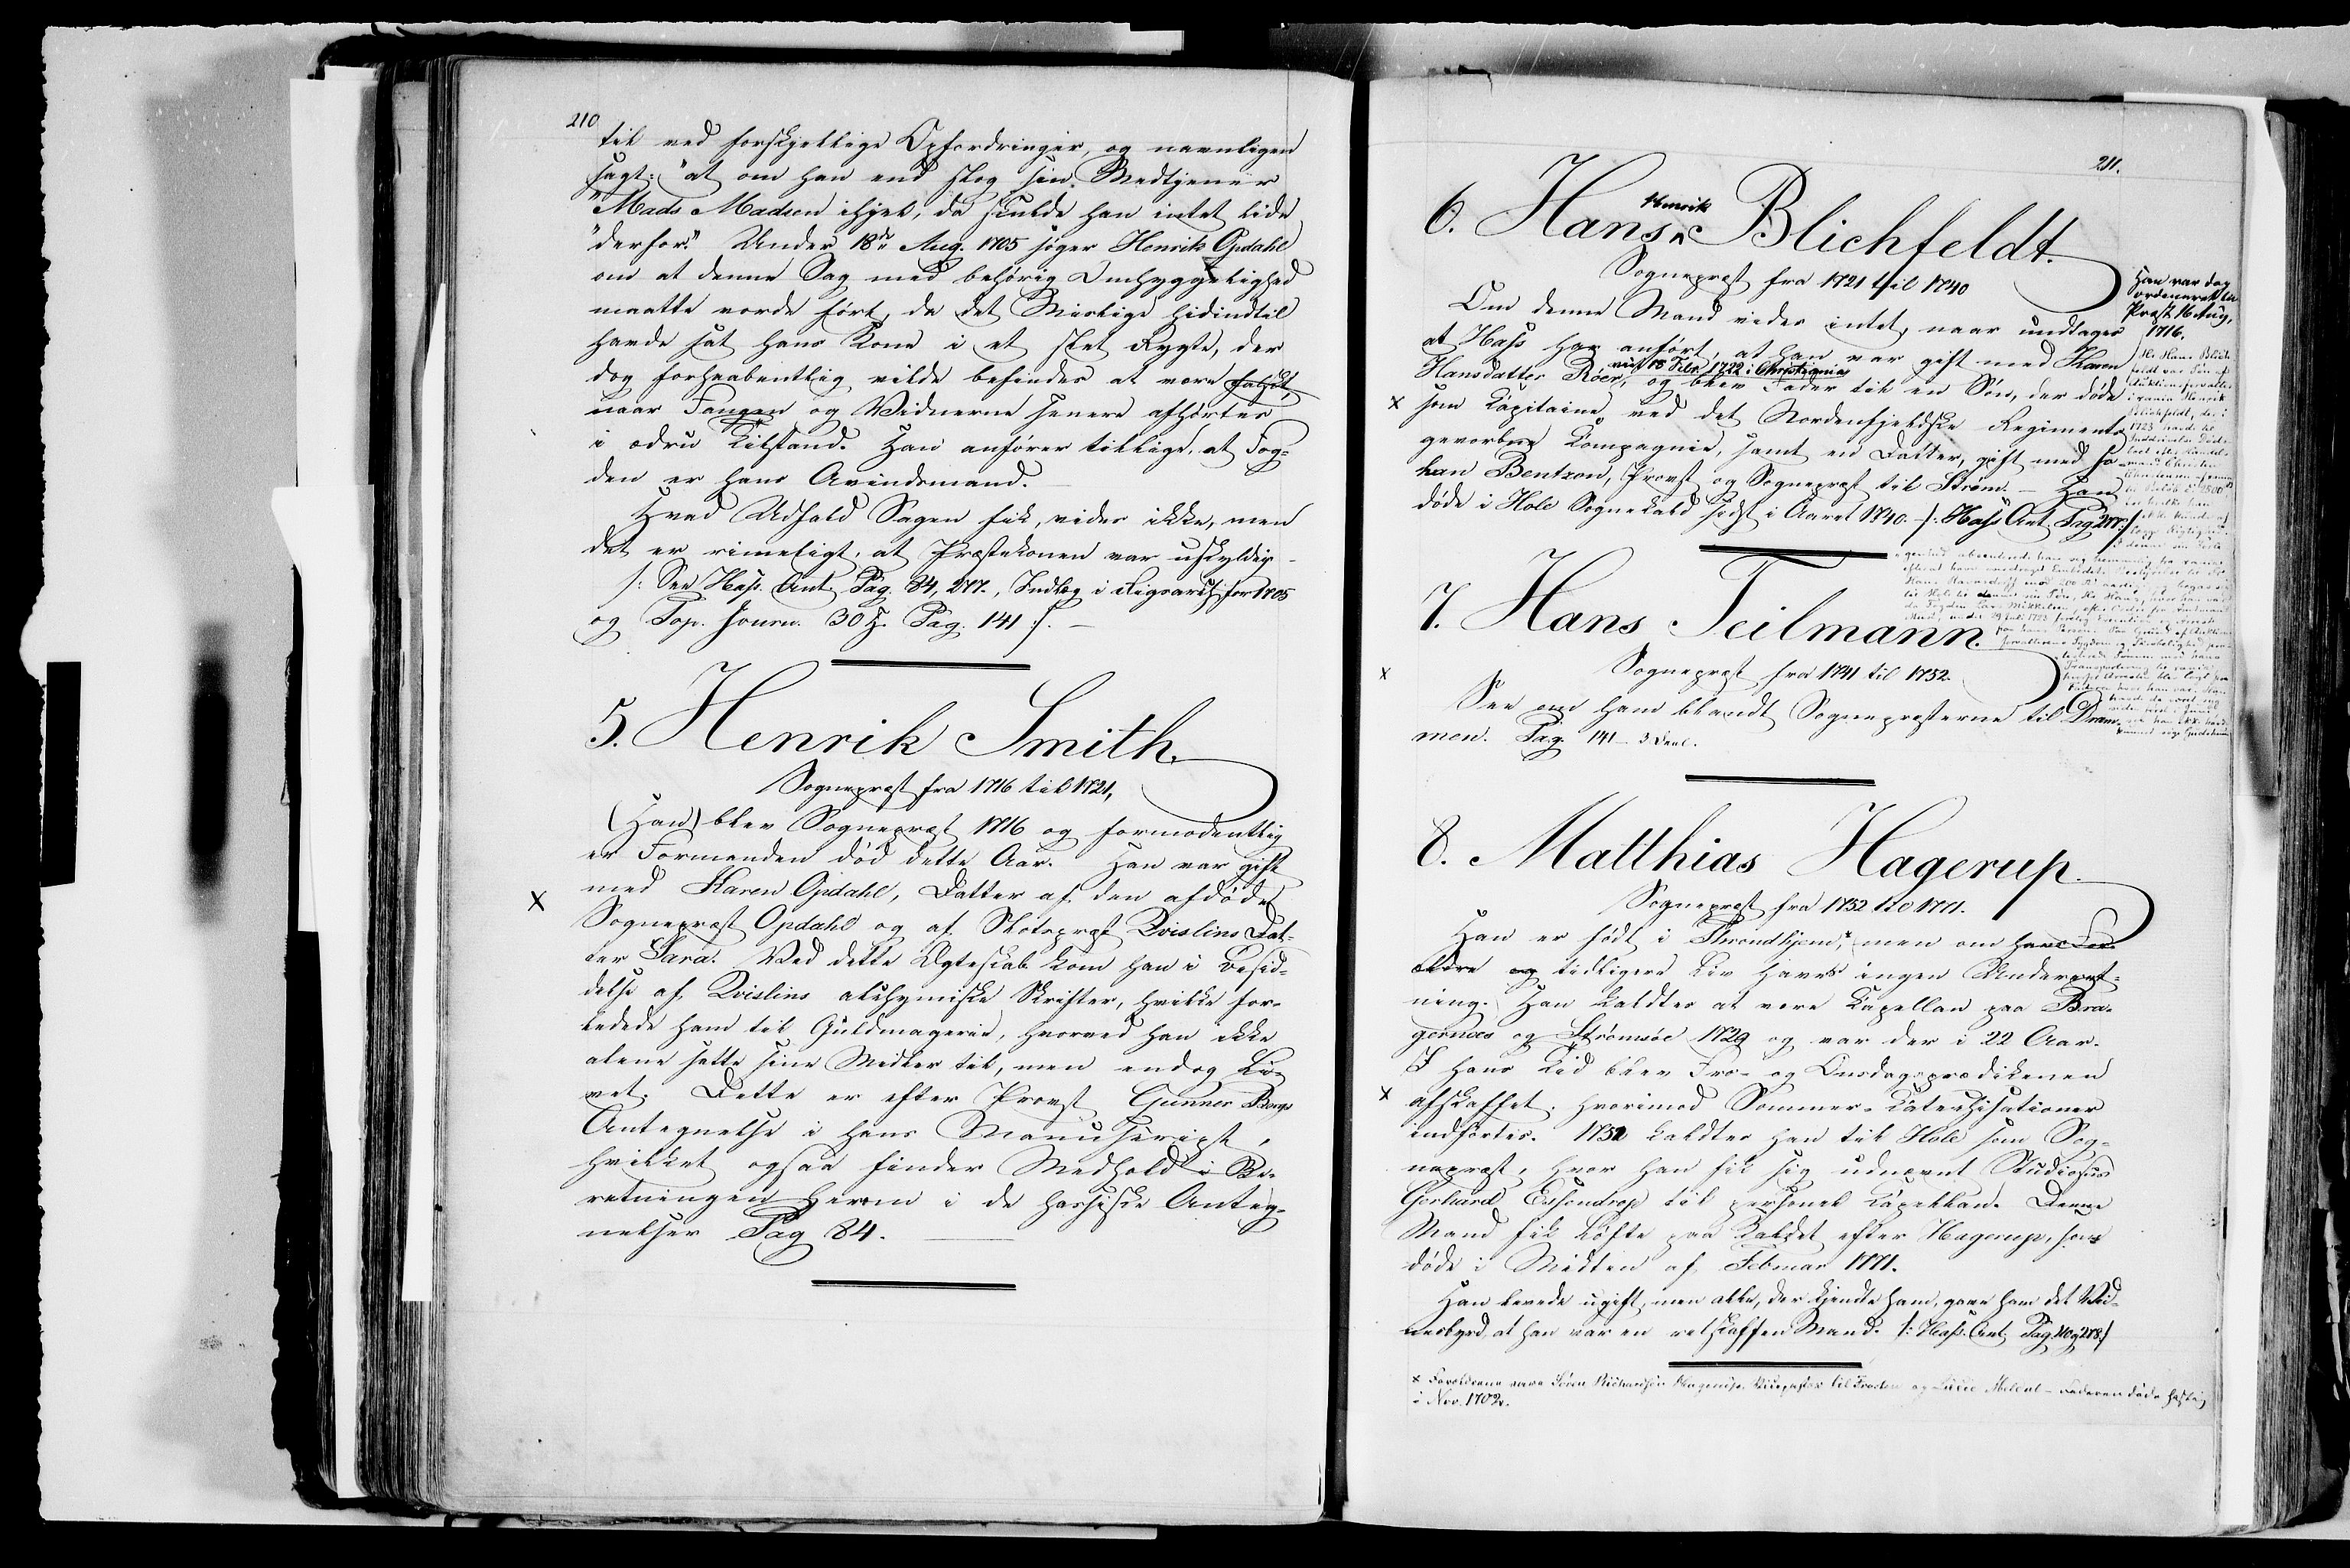 210
til ved forskjellige Opfordringer, og navnligen
sagt: "at om han end slog sin Medtjener
"Mads Madsen ihjel, da skulde han intet lide
"derfor." Under 18de Aug. 1705 siger Henrik Opdahl
om at denne Sag med behørig Omhyggelighed
maatte vorde ført, da det Mislige hidindtil
havde sat hans Kone i et slet Rygte, der
dog forhaabentlig vilde befindes at være falskt,
naar Fangen og Vidnerne senere afhørtes
i ædru Tilstand. Han anfører tillige, at Fog-
den er hans Avindsmand.
Hvad Udfald Sagen fik, vides ikke, men
det er rimeligt, at Præstekonen var uskyldig –
/: See Hass. Ant. Pag. 84, 277., Indlæg i Rigsarch for 1705
og Top. Journ. 30 H. Pag. 141 :/. –
5. Henrik Smith.
Sognepræst fra 1716 til 1721,
(Han) blev Sognepræst 1716 og formodentlig
er Formanden død dette Aar. Han var gift
x med Karen Opdahl, Datter af den afdøde
Sognepræst Opdahl og af Slotspræst Qvislins Dat-
ter Sara. Ved dette Ægteskab kom han i Besid-
delse af Qvislins alchymiske Skrifter, hvilke for-
ledede ham til Guldmageri, hvorved han ikke
alene satte sine Midler til, men endog Li-
vet. Dette er efter Provst Gunner Bergs
Antegnelse i hans Manuscript,
hvilket ogsaa finder Medhold i Be-
retningen herom i de hassiske Anteg-
nelser Pag 84.
211.
6. Hans Henrik Blichfeldt.
Sognepræst fra 1721 til 1740
Han var dog
ordineret til
Præst 16 Aug.
1716.
Om denne Mand vides intet, naar undtages
at Hass har anført, at han var gift med Karen
Hansdatter Röer, viet 18 Febr. 1722 i Christiania og blev Fader til en Søn, der døde
x som Kapitaine ved det Nordenfjeldske Regiments
gevorbne Kompagnie, samt en Datter, gift med Jo-
han Bentzon, Provst og Sognepræst til Strøm. – Han
døde i Hole Sognekald sidst i Aaret 1740. /: Hass Ant. Pag 277:/.
Hr. Hans Blich-
feldt var Søn af
7. Hans Teilmann.
Sognepræst fra 1741 til 1752.
x
See om ham blandt Sognepræsterne til Dram-
men. Pag. 141 – 3 Deel.
8. Matthias Hagerup.
Sognepræst fra 1752 til 1771.
Han er født i Throndhjem,x men om hans For-
ældre og tidligere Liv haves ingen Underret-
ning. Han kaldtes at være Kapellan paa Bra-
gernæs og Strømsøe 1729 og var der i 22 Aar.
I hans Tid blev Fro- og Onsdagsprædikenen
x afskaffet, hvorimod Sommer-Katechisationer
indførtes. 1752 kaldtes han til Hole som Sog-
nepræst, hvor han fik sig udnævnt Studiosus
Gerhard Essendrop til personel Kapellan. Denne
Mand fik Løfte paa Kaldet efter Hagerup, som
døde i Midten af Februar 1771.
Han levede ugift, men alle, der kjendte ham, gave ham det Vid-
nesbyrd, at han var en retskaffen Mand. /: Hass. Ant. Pag. 40 og 278:/
x Forældrene vare Søren Hagerup, til Frosten og – Faderen døde hastig
i Nov. 1702.